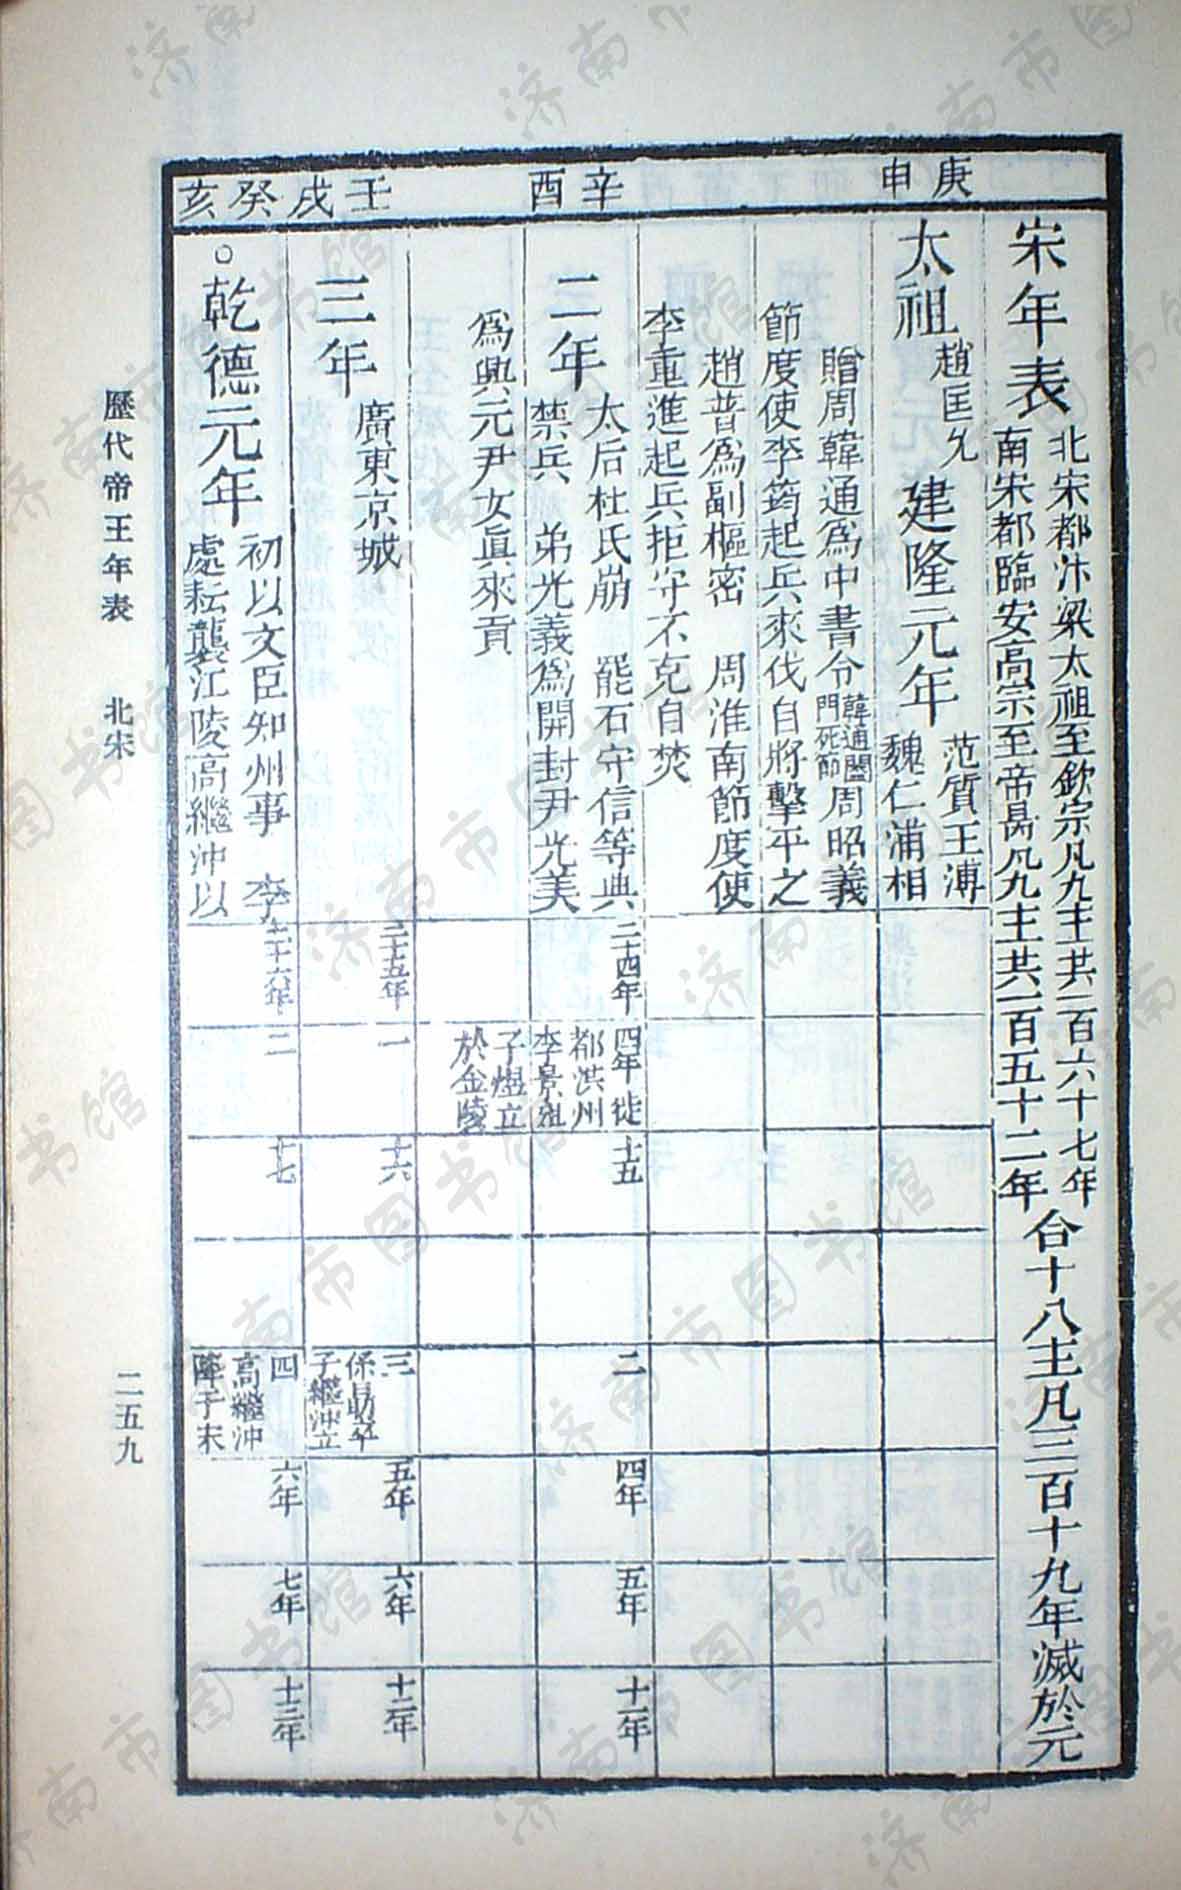 庚申
辛酉
壬戌
癸亥
宋年表
北宋都汴梁太祖至欽宗凡九主共一百六十七年
南宋都臨安高宗至帝昺凡九主共一百五十二年
合十八主凡三百十九年滅於元
太祖
趙匡允
建隆元年
范質王溥
魏仁浦相
贈周韓通爲中書令
韓通闔
門死節
周昭義
節度使李筠起兵來伐自將擊平之
趙普爲副樞密 周淮南節度使
李重進起兵拒守不克自焚
二年
太后杜氏崩 罷石守信等典
禁兵 弟光義爲開封尹光美
二十四年
四年徙
都洪州
李景殂
子煜立
於金陵
十五
二
四年
五年
十一年
爲興元尹女眞來貢
三年
廣東京城
二十五年
一
十六
三
保勗卒
子繼沖立
五年
六年
十二年
○乾德元年
初以文臣知州事 李
處耘襲江陵高繼沖以
二十六年
二
十七
四
高繼沖
降于宋
六年
七年
十三年
歷代帝王年表 北宋
二五九
济南市图书馆